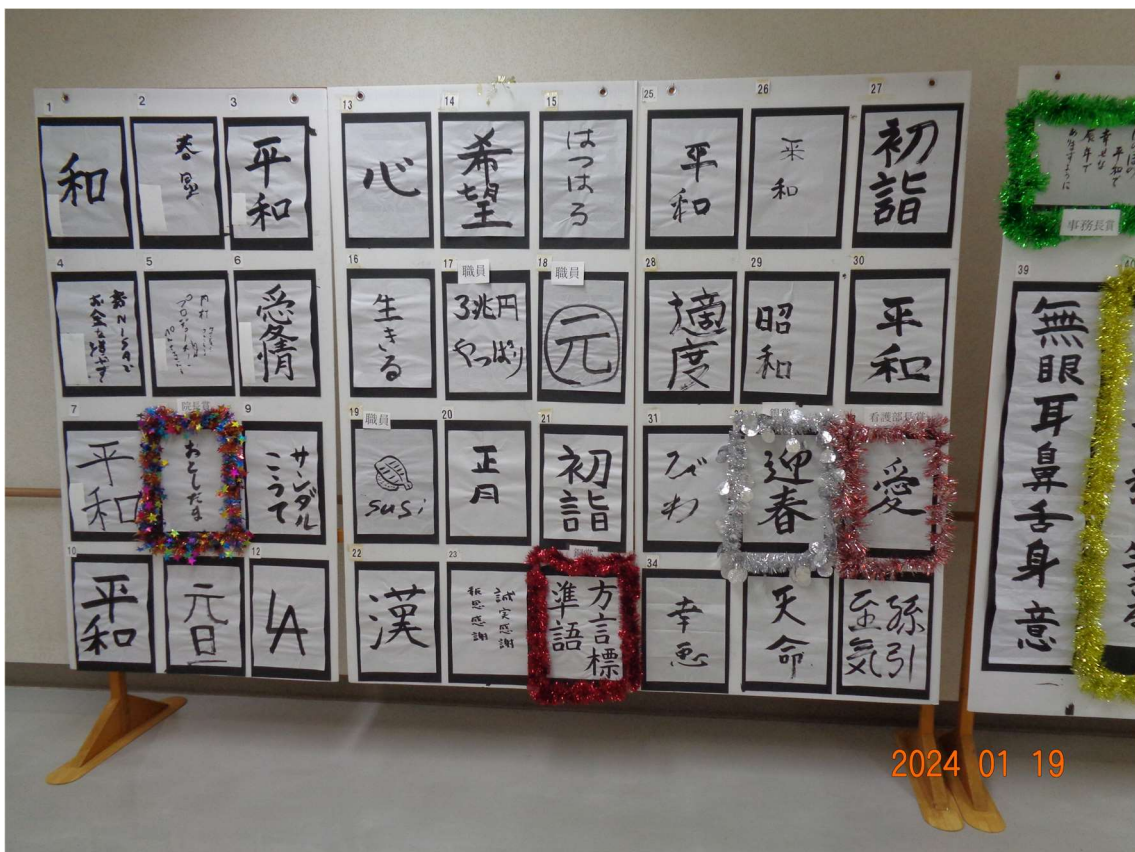 1
和
2
3
平和
4
新NISAで
お金を増やす
5
6
愛情
7
平和
院長賞
おとしだま
9
サンダル
こうて
10
平和
元旦
12
LA
13
心
14
希望
15
はつはる
16
生きる
17
職員
3兆円
やっぱり
18
職員
元
19
職員
susi
20
正月
21
初詣
22
漢
23
誠実感謝
報恩感謝
方言標
準語
25
平和
26
平和
27
初詣
28
適度
29
昭和
30
平和
31
びわ
迎春
看護部長賞
愛
34
幸恵
天命
孫引
至気
平和で
幸せな
辰年で
ありますように
事務長賞
39
無眼耳鼻舌身意
40
2024 01 19